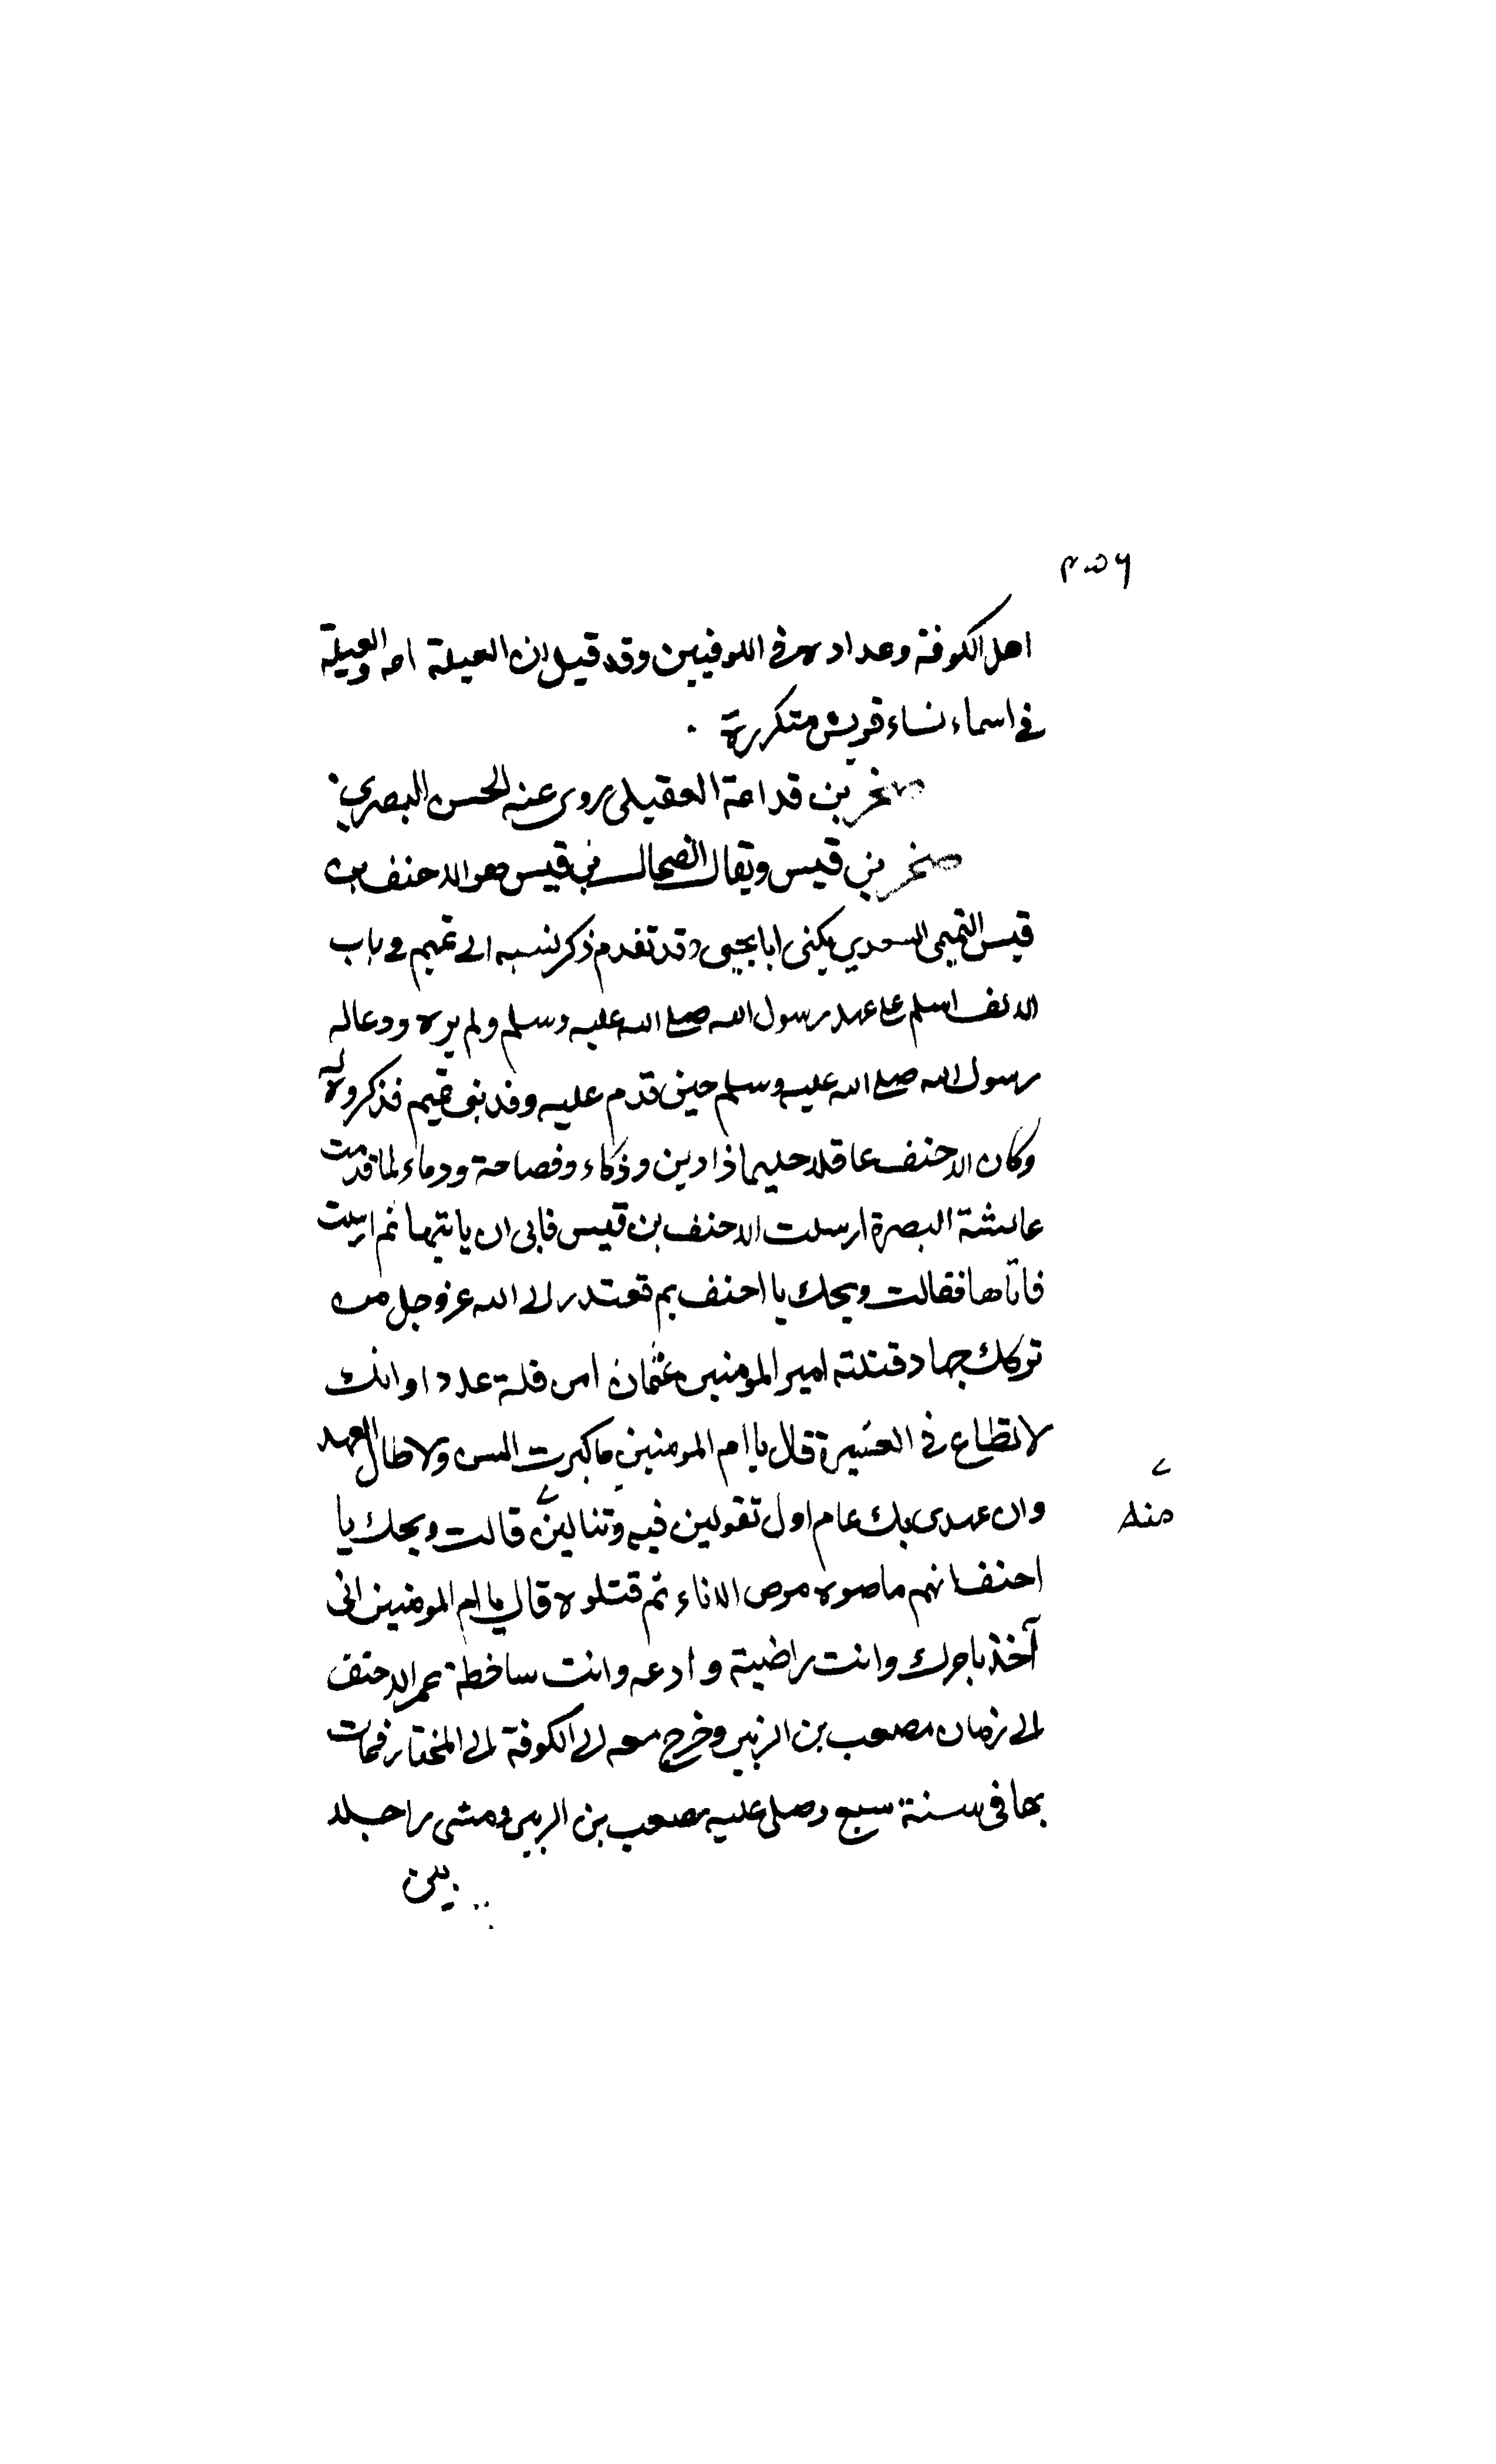 ٣٥٦
اهل الكوفة وعداده في الكوفيين وقد قيل ان العيلة امه والعيلة
في اسماء نساء قريش متكررة .
صخر بن قدامة العقيلي روى عنه الحسن البصري .
صخر بن قيس ويقال الضحاك بن قيس هو الاحنف بن
قيس التميمي السعدي يكنى ابا بحي وقد تقدم ذكر نسبه الى تميم في باب
الالف اسلم على عهد رسول الله صلى الله عليه وسلم ولم يره ودعا له
رسول الله صلى الله عليه وسلم حين قدم عليه وفد بني تميم فذكروه له
وكان الاحنف عاقلا حليما ذا دين وذكاء وفصاحة ودهاء لما قدمت
عائشة البصرة ارسلت الاحنف بن قيس فابى ان ياتيها ثم ارسلت
فاتاها فقالت ويحك يا احنف بم تعتذر الى الله عز وجل من
تركك جهاد قتلته امير المومنين عثمان امن قلة عدد او انك
لا تطاع في العشيرة قال يا ام المومنين ما كبرت السن ولا طال العهد
وان عهدى بك عام اول تقولين فيه وتنالين قالت ويحك يا
منه
احنف انهم ماصوه موص الاناء ثم قتلوه قال يا ام المومنين اني
آخذ بامرك وانت راضية وادعه وانت ساخطة عمر الاحنف
الى زمان مصعب بن الزبير وخرج معه الى الكوفة الى المختار فمات
بها في سنة سبع وصلى عليه مصعب بن الزبير ومشى راجلا
بين